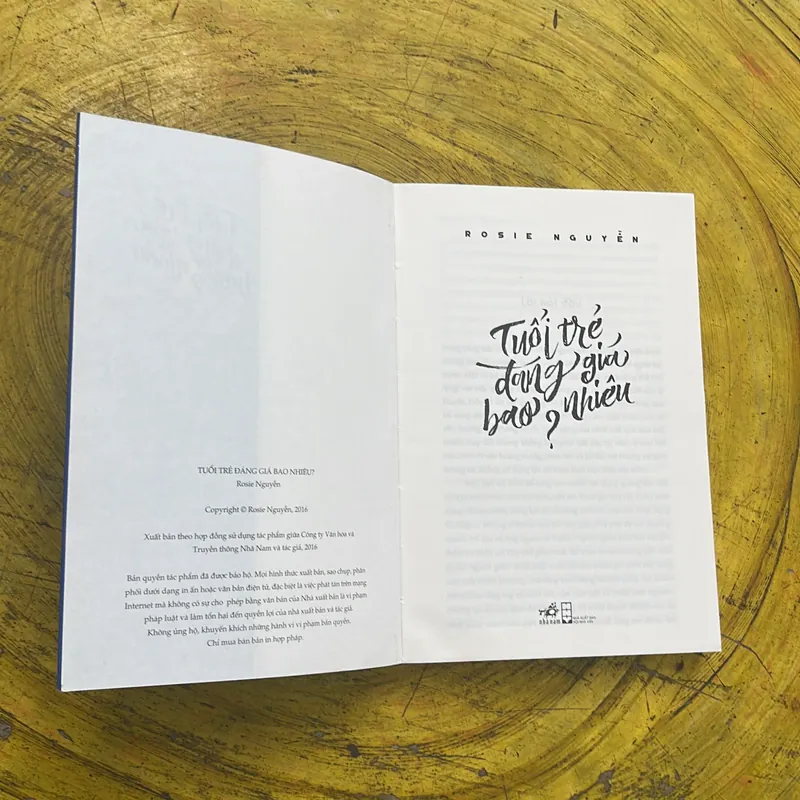 TUỔI TRẺ ĐÁNG GIÁ BAO NHIÊU?
Rosie Nguyễn
Copyright © Rosie Nguyễn, 2016
Xuất bản theo hợp đồng sử dụng tác phẩm giữa Công ty Văn hóa và
Truyền thông Nhã Nam và tác giả, 2016
Bản quyền tác phẩm đã được bảo hộ. Mọi hình thức xuất bản, sao chụp, phân
phối dưới dạng in ấn hoặc văn bản điện tử, đặc biệt là việc phát tán trên mạng
Internet mà không có sự cho phép bằng văn bản của Nhà xuất bản là vi phạm
pháp luật và làm tổn hại đến quyền lợi của nhà xuất bản và tác giả.
Không ủng hộ, khuyến khích những hành vi vi phạm bản quyền.
Chỉ mua bán bản in hợp pháp.
ROSIE NGUYỄN
Tuổi trẻ
đáng giá
bao nhiêu
?
nhã nam
NHÀ XUẤT BẢN
HỘI NHÀ VĂN